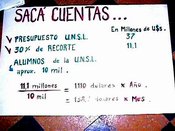 SACA CUENTAS...
En Millones de U$s.
✓ PRESUPUESTO U.N.S.L. 37
✓ 30% de RECORTE 11,1
✓ ALUMNOS de la U.N.S.L.
aprox. 10 mil.
11,1 millones = 1110 dolares x Año.
10 mil = dolares x Mes.